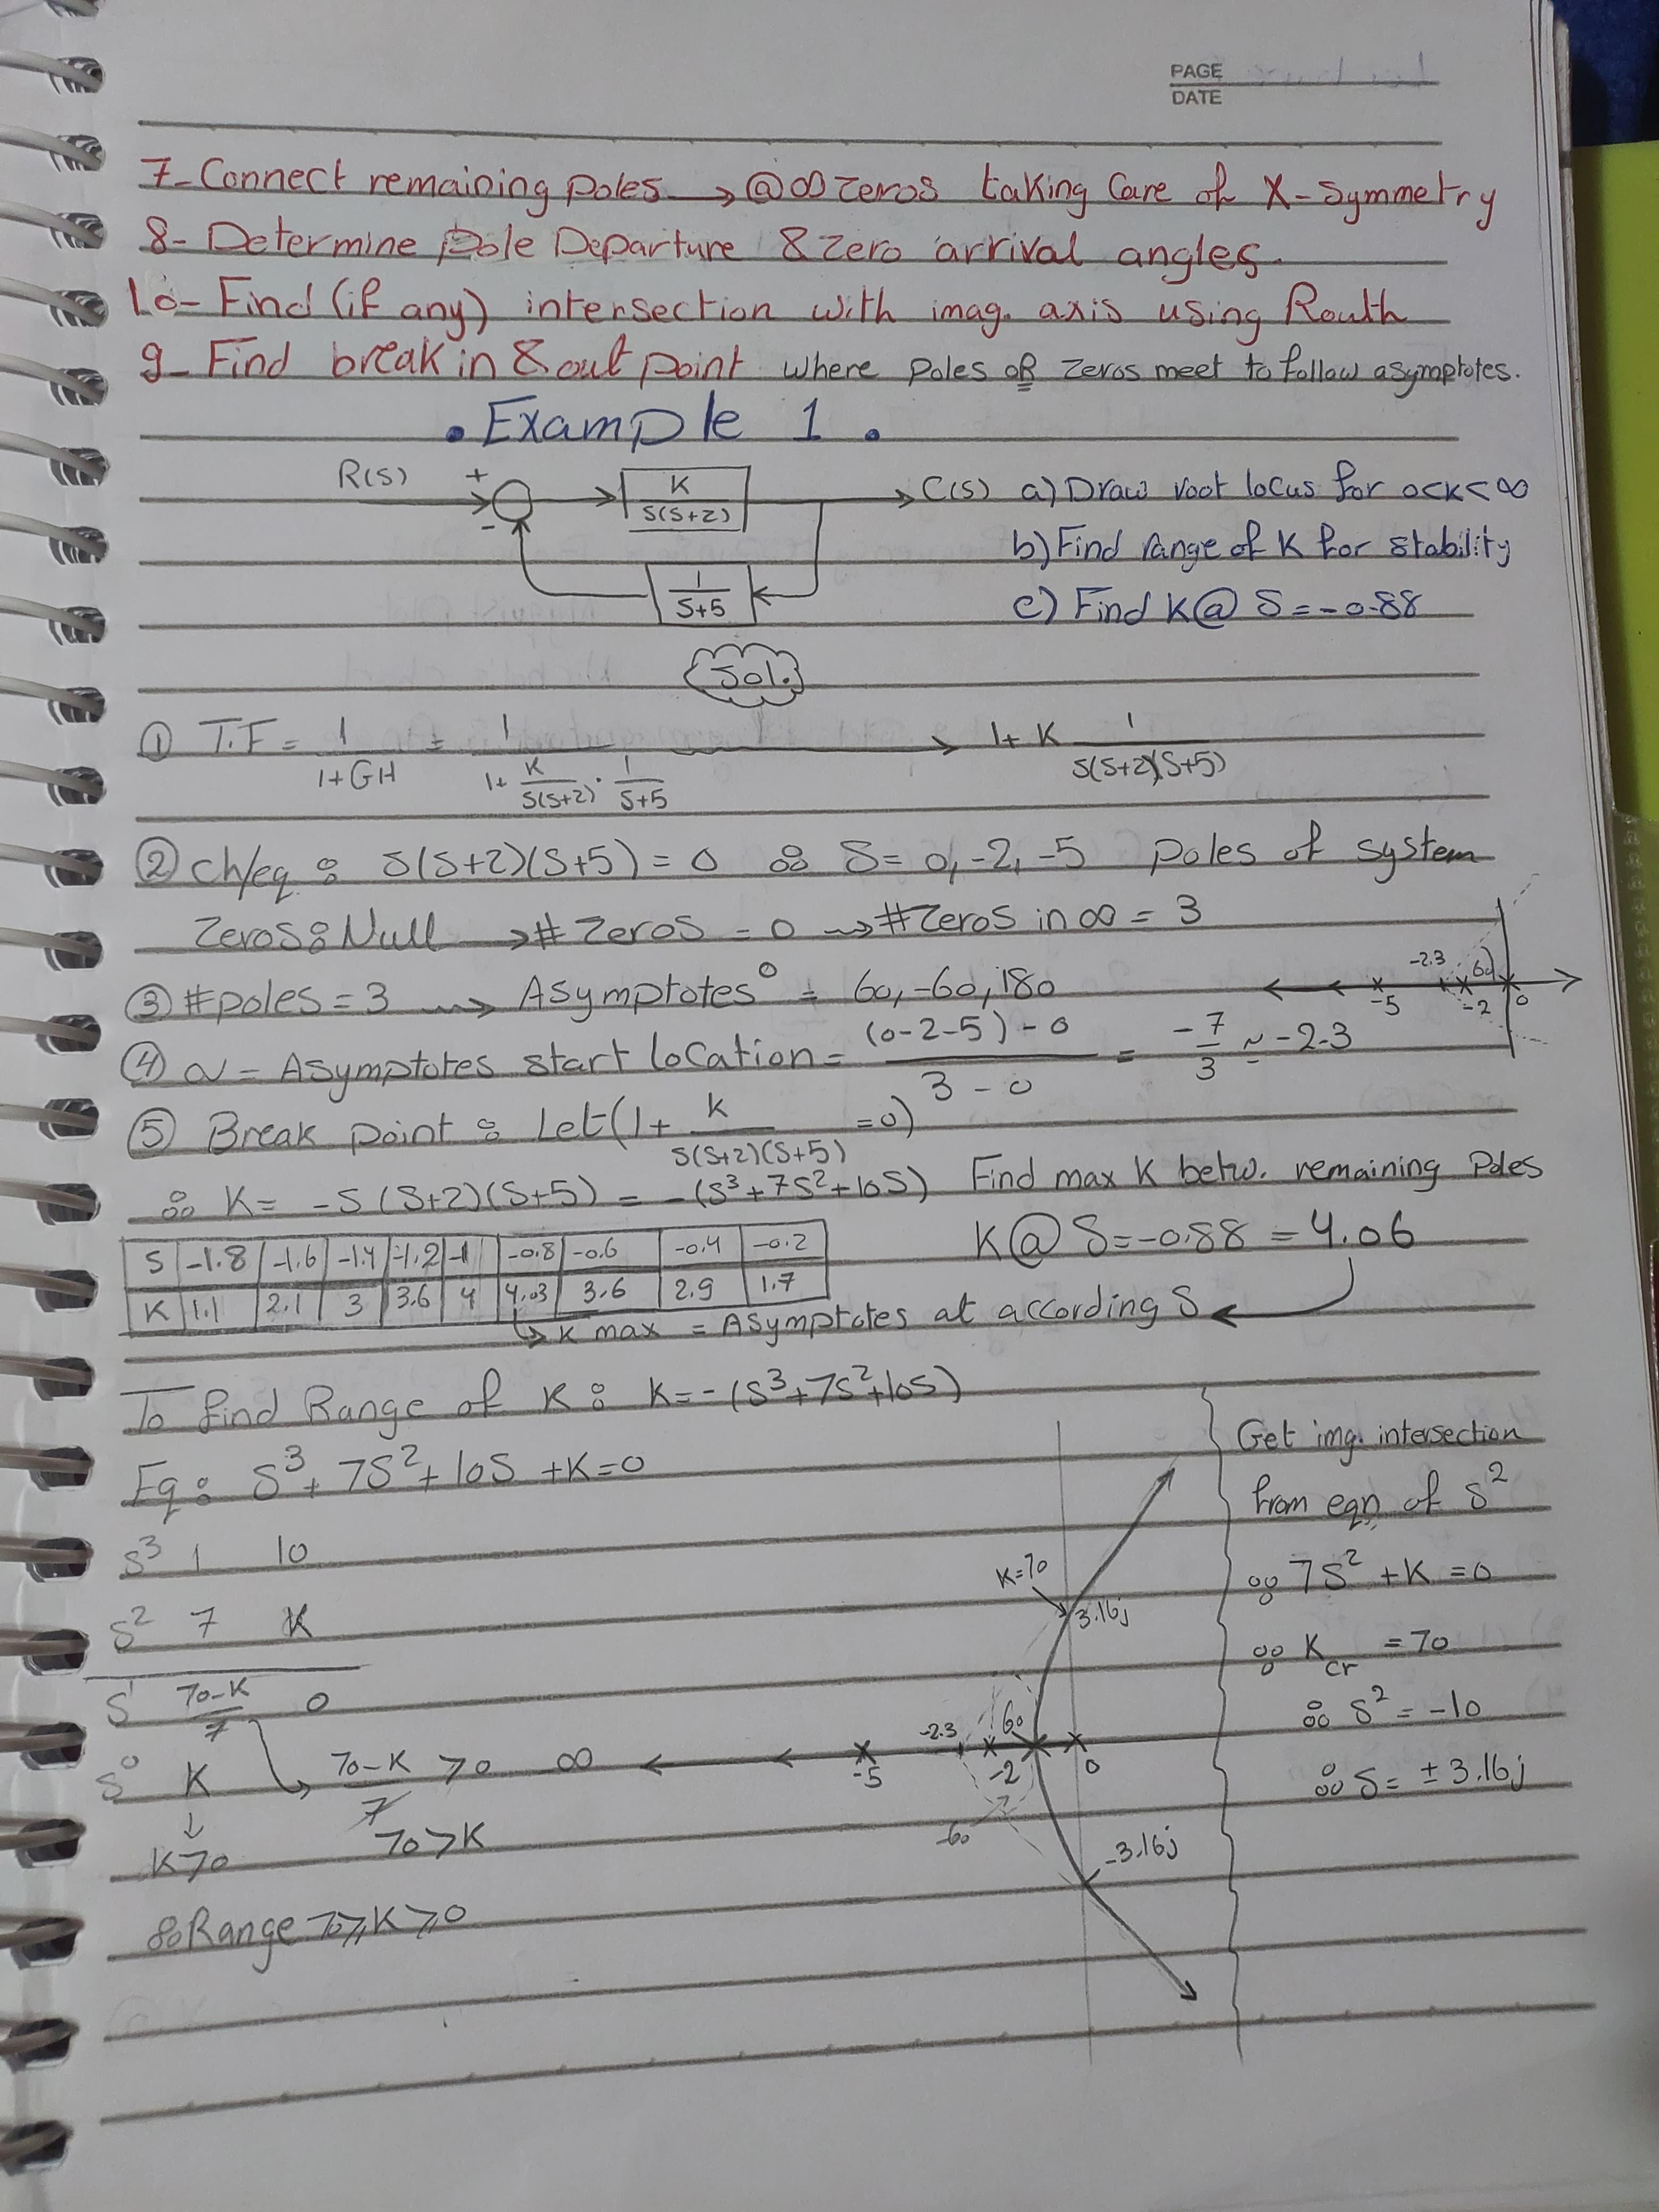 PAGE
DATE
7- Connect remaining poles → @∞ zeros taking care of X-symmetry
8- Determine Pole Departure & zero arrival angles.
10- Find (if any) intersection with imag. axis using Routh
9- Find break in & out point where poles OR zeros meet to follow asymptotes.
• Example 1 •
R(S) + - K / S(S+2) → C(S) a) Draw root locus for 0<K<∞
b) Find range of K for stability
1 / S+5
c) Find K @ S = -0.88
Sol.
① T.F = 1 / 1+GH = 1 / 1+ K/S(S+2) · 1/S+5 → 1+ K 1 / S(S+2)(S+5)
② ch/eq : S(S+2)(S+5) = 0 ∴ S = 0, -2, -5 Poles of system
Zeros: Null → # Zeros = 0 → # Zeros in ∞ = 3
-2.3 60 -5 -2 0
③ # poles = 3 → Asymptotes° = 60, -60, 180
④ α = Asymptotes start location = (0-2-5) - 0 / 3 - 0 = -7/3 ≃ -2.3
⑤ Break point : Let (1+ K / S(S+2)(S+5) = 0)
∴ K = -S(S+2)(S+5) = -(S³+7S²+10S) Find max K betw. remaining Poles
S -1.8 -1.6 -1.4 -1.2 -1 -0.8 -0.6 -0.4 -0.2
K 1.1 2.1 3 3.6 4 4.03 3.6 2.9 1.7
K @ S = -0.88 = 4.06
↳ K max = Asymptotes at according S ←
To find Range of K : K = -(S³+7S²+10S)
Eq : S³ + 7S² + 10S + K = 0
S³ 1 10
S² 7 K
S¹ 70-K / 7 0
S⁰ K → 70-K / 7 > 0
↓
K>0
70 > K
∴ Range 70 ⩾ K ⩾ 0
K=70
3.16j
∞ -5 -2.3 -2 60 0
-60
-3.16j
Get img. intersection
from eqn of S²
∴ 7S² + K = 0
∴ Kcr = 70
∴ S² = -10
∴ S = ± 3.16j